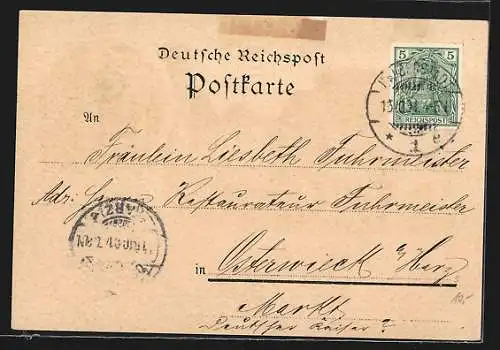 Deutsche Reichspost
Postkarte
5 5
REICHSPOST
An
Fräulein Liesbeth Fuhrmeister
Adr: Herrn Restaurateur Fuhrmeister
in Osterwieck a/Harz
Markt
Deutscher Kaiser